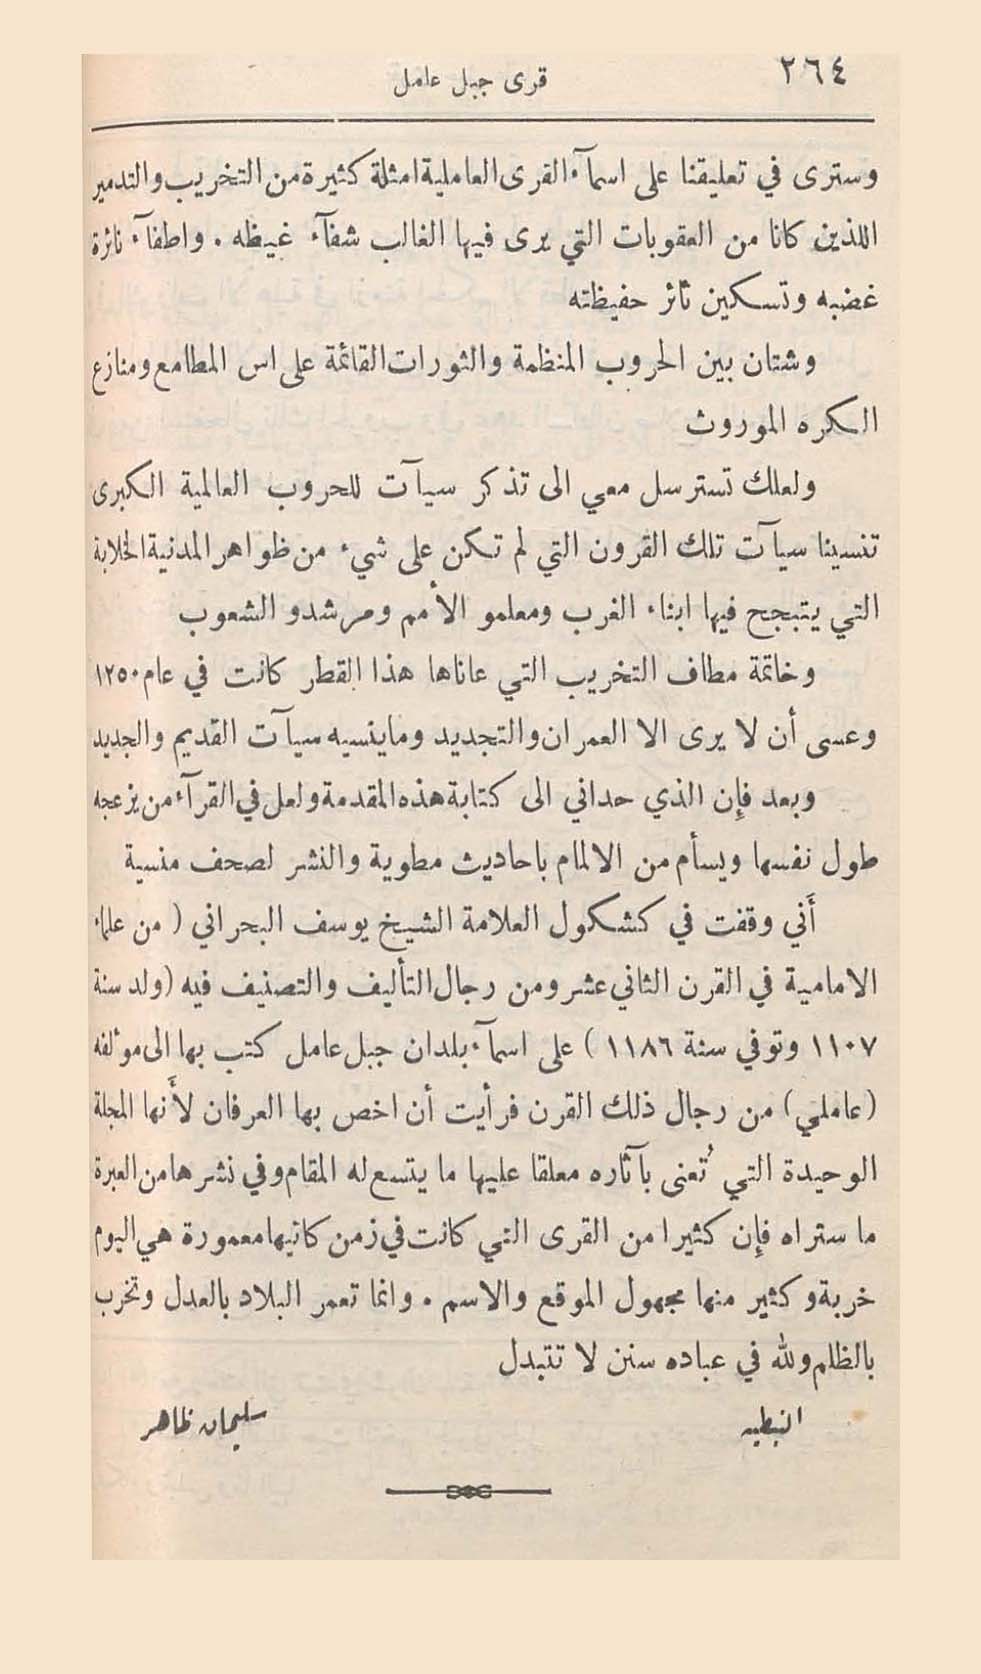 ٢٦٤
قرى جبل عامل
وسترى في تعليقنا على اسمآء القرى العاملية امثلة كثيرة من التخريب والتدمير
اللذين كانا من العقوبات التي يرى فيها الغالب شفآء غيظه . واطفآء نائرة
غضبه وتسكين ثائر حفيظته
وشتان بين الحروب المنظمة والثورات القائمة على اس المطامع ومنازع
الكره الموروث
ولعلك تسترسل معي الى تذكر سيآت للحروب العالمية الكبرى
تنسينا سيآت تلك القرون التي لم تكن على شيء من ظواهر المدنية الخلابة
التي يتبجح فيها ابناء الغرب ومعلمو الأمم ومرشدو الشعوب
وخاتمة مطاف التخريب التي عاناها هذا القطر كانت في عام ١٢٥٠
وعسى أن لا يرى الا العمران والتجديد وما ينسيه سيآت القديم والجديد
وبعد فإن الذي حداني الى كتابة هذه المقدمة ولعل في القرآء من يزعجه
طول نفسها ويسأم من الالمام باحاديث مطوية والنشر لصحف منسية
أني وقفت في كشكول العلامة الشيخ يوسف البحراني ( من علماء
الامامية في القرن الثاني عشر ومن رجال التأليف والتصنيف فيه (ولد سنة
١١٠٧ وتوفي سنة ١١٨٦ ) على اسمآء بلدان جبل عامل كتب بها الى مؤلفه
(عاملي) من رجال ذلك القرن فرأيت أن اخص بها العرفان لأنها المجلة
الوحيدة التي تُعنى بآثاره معلقا عليها ما يتسع له المقام وفي نشرها من العبرة
ما ستراه فإن كثيرا من القرى التي كانت في زمن كاتبها معمورة هي اليوم
خربة وكثير منها مجهول الموقع والاسم . وانما تعمر البلاد بالعدل وتخرب
بالظلم ولله في عباده سنن لا تتبدل
النبطيه
سليمان ظاهر